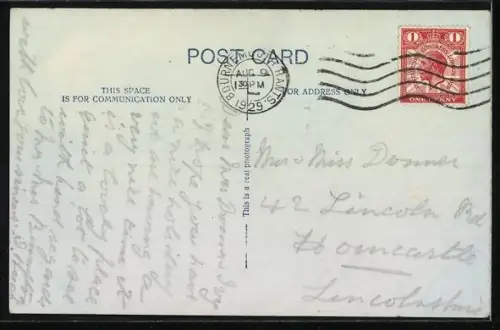 POST CARD
THIS SPACE
IS FOR COMMUNICATION ONLY
FOR ADDRESS ONLY
BOURNEMOUTH HANTS
AUG 9
30 PM
1929
1 1
ONE PENNY
This is a real photograph
Mr & Miss Donner
42 Lincoln Rd
Horncastle
Lincolnshire
Dear Mrs Donner
I hope you have
a nice holiday
we are having a
very nice time it
is a lovely place
quite a lot to see
with kind regards
to Mr & Mrs
with love from